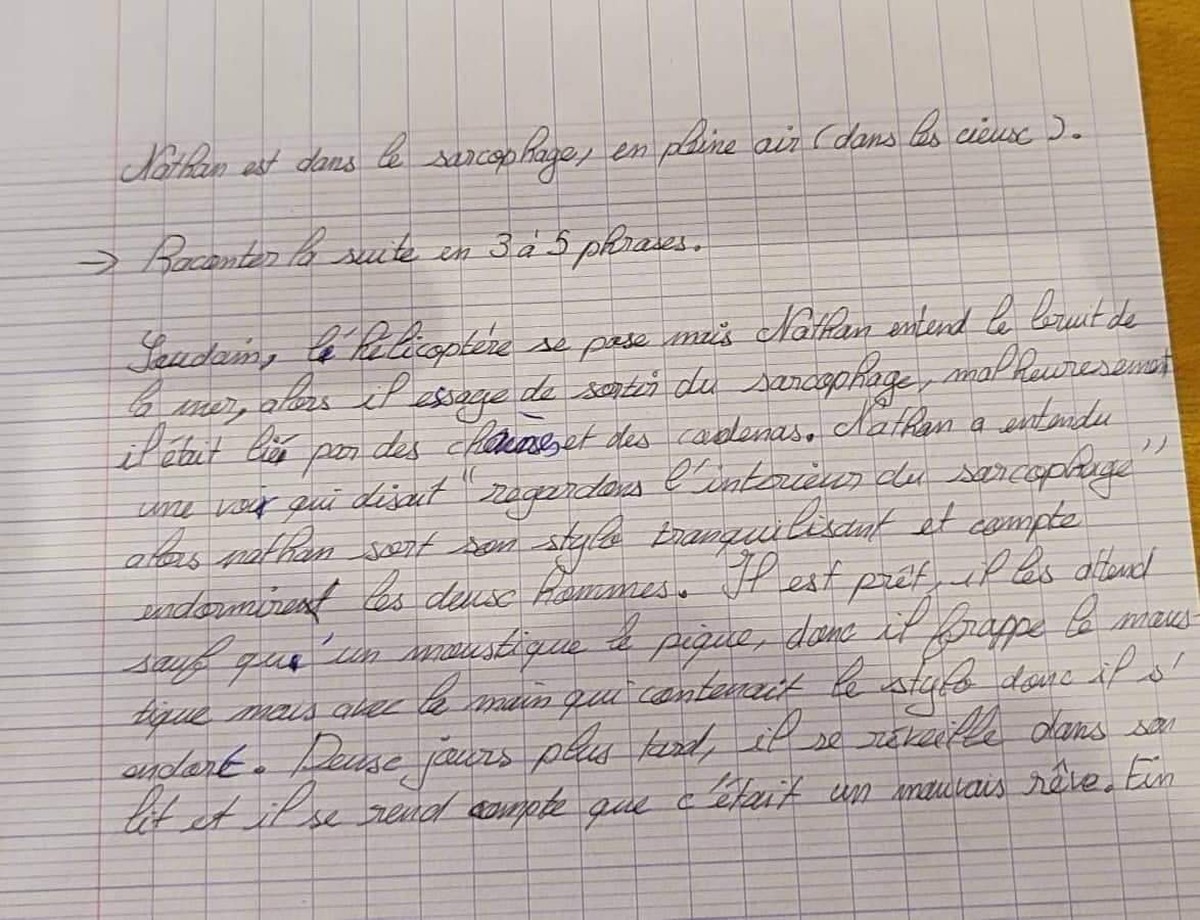 Nathan est dans le sarcophage, en pleine air (dans les cieux).
→ Raconter la suite en 3 à 5 phrases.
Soudain, l'hélicoptère se pose mais Nathan entend le bruit de
la mer, alors il essaye de sortir du sarcophage, malheuresement
il était lié par des chaînes et des cadenas. Nathan a entendu
une voix qui disait "regardons l'interieur du sarcophage"
alors nathan sort son stylo tranquilisant et compte
endormirent les deux hommes. Il est prêt, il les attend
sauf qu'un moustique le pique, donc il frappe le mous-
tique mais avec la main qui contenait le stylo donc il s'
endort. Deux jours plus tard, il se réveille dans son
lit et il se rend compte que c'était un mauvais rêve. Fin